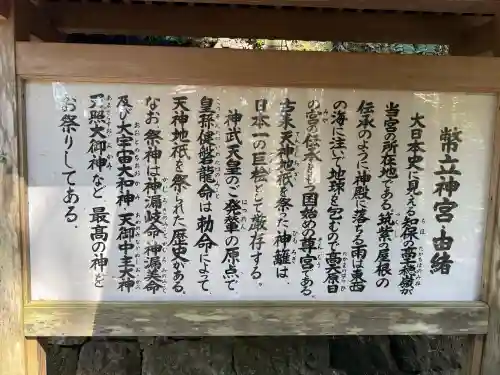 幣立神宮由緒
大日本史に見える知保の高穂嶽が
当宮の所在地である筑紫の屋根の
伝承のように神殿に落ちる雨は東西
の海に注いで地球を包むので高天原日
の宮の伝承をもつ国始めの尊宮である。
古来天神地祇を祭った神籬は、
日本一の巨桧として厳存する。
神武天皇のご発輦の原点で
皇孫健磐龍命は勅命によって、
天神地祇を祭られた歴史がある。
なお、祭神は神漏岐命・神漏美命
及び大宇宙大和神・天御中主大神
天照大御神など、最高の神を
お祭りしてある。